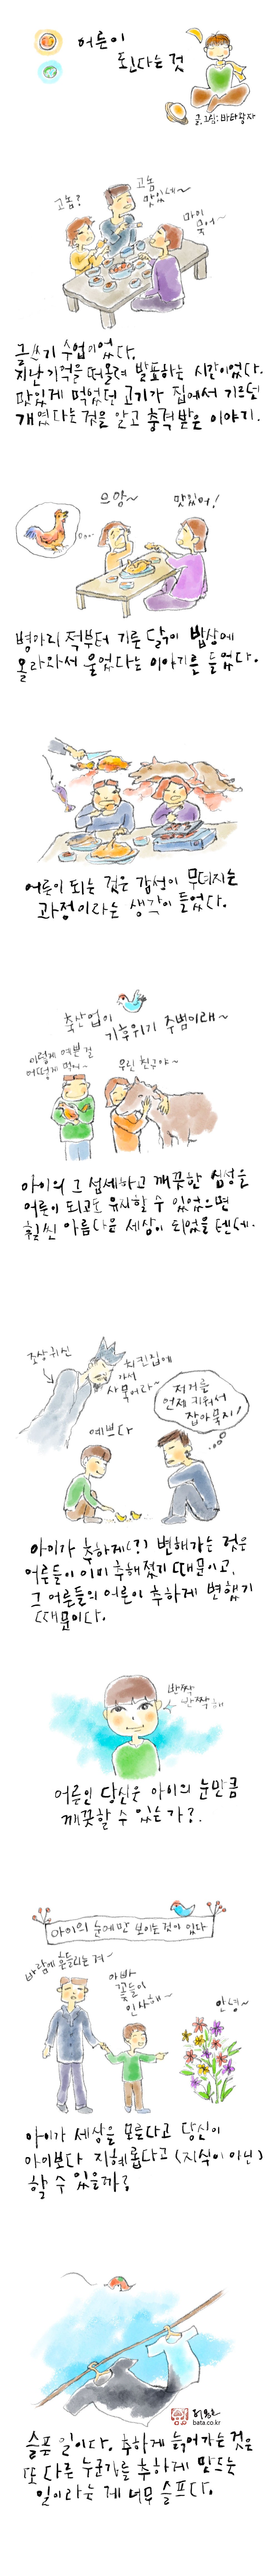 어른이
된다는 것
글,그림: 바타광자
고놈?
고놈
맛있네~
마이
묵어~
글쓰기 수업이었다.
지난 기억을 떠올려 발표하는 시간이었다.
맛있게 먹었던 고기가 집에서 기르던
개였다는 것을 알고 충격받은 이야기.
으앙~
맛있어!
병아리 적부터 기른 닭이 밥상에
올라와서 울었다는 이야기를 들었다.
어른이 되는 것은 감성이 무뎌지는
과정이라는 생각이 들었다.
축산업이
기후위기 주범이래~
이렇게 예쁜 걸
어떻게 먹어~
우린 친구야~
아이의 그 섬세하고 깨끗한 심성을
어른이 되고도 유지할 수 있었으면
훨씬 아름다운 세상이 되었을 텐데.
조상귀신
치킨집에
가서
사묵어라~
저거를
언제 키워서
잡아묵지!
예쁘다
아이가 추하게(?) 변해가는 것은
어른들이 이미 추해졌기 때문이고,
그 어른들의 어른이 추하게 변했기
때문이다.
반짝
반짝해
어른인 당신은 아이의 눈만큼
깨끗할 수 있는가?
아이의 눈에만 보이는 것이 있다
바람에 흔들리는 겨~
아빠
꽃들이
인사해~
안녕~
아이가 세상을 모른다고 당신이
아이보다 지혜롭다고 (지식이 아닌)
할 수 있을까?
bata.co.kr
슬픈 일이다. 추하게 늙어가는 것은
또 다른 누군가를 추하게 만드는
일이라는 게 너무 슬프다.